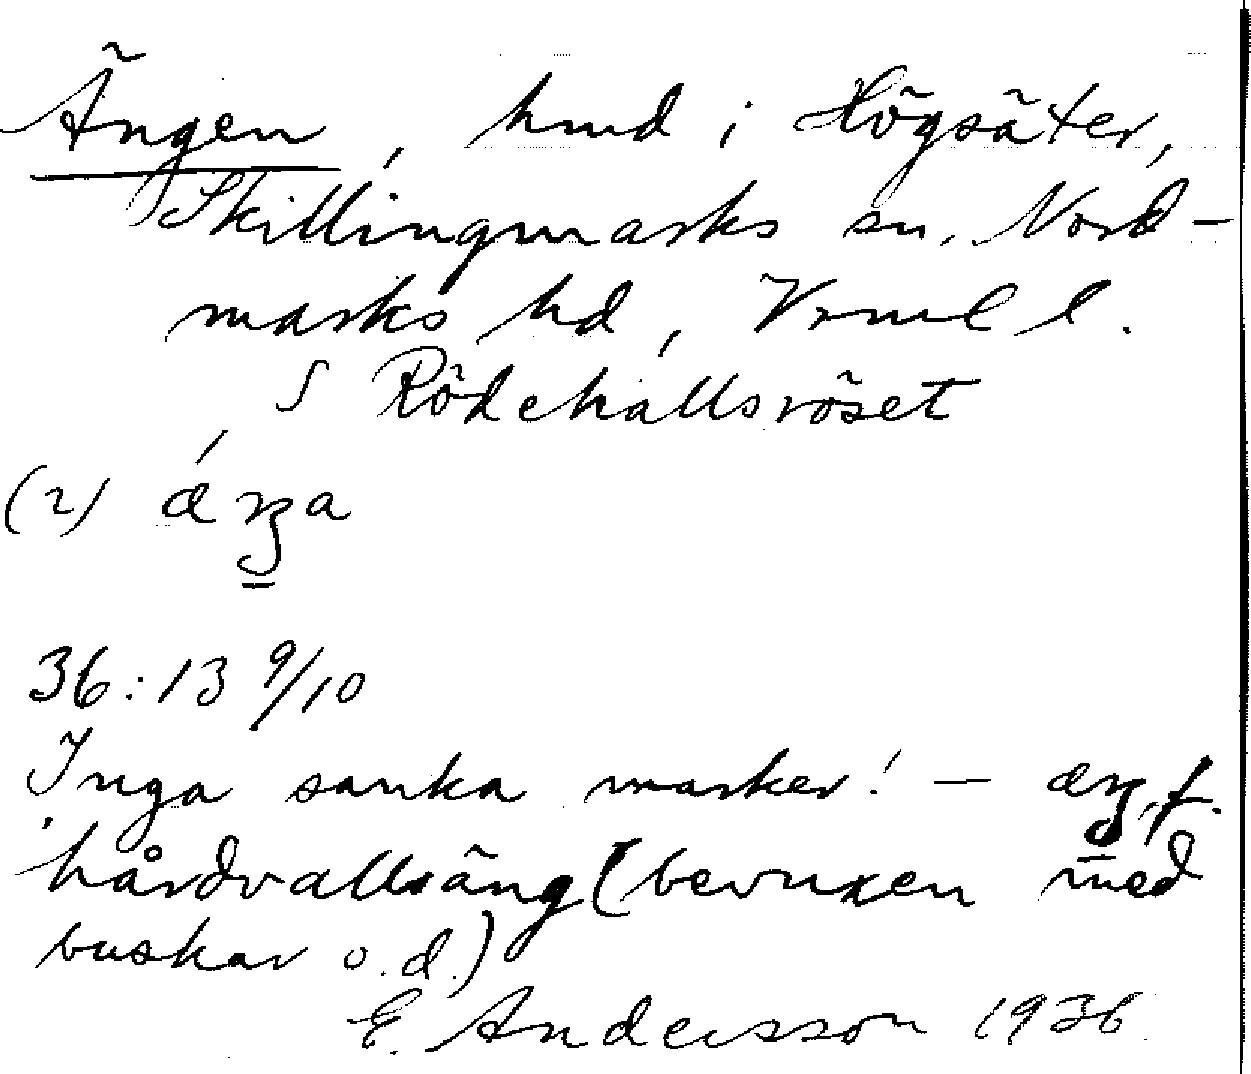 Ängen, hmd i Högsäter,
Skillingmarks sn, Nord-
marks hd, Vrml l.
S Rödehallsröset
(2)
36:13 9/10
Inga sanka marker! — f.
'hårdvallsäng (bevuxen med
buskar o.d.)
E. Andersson 1936